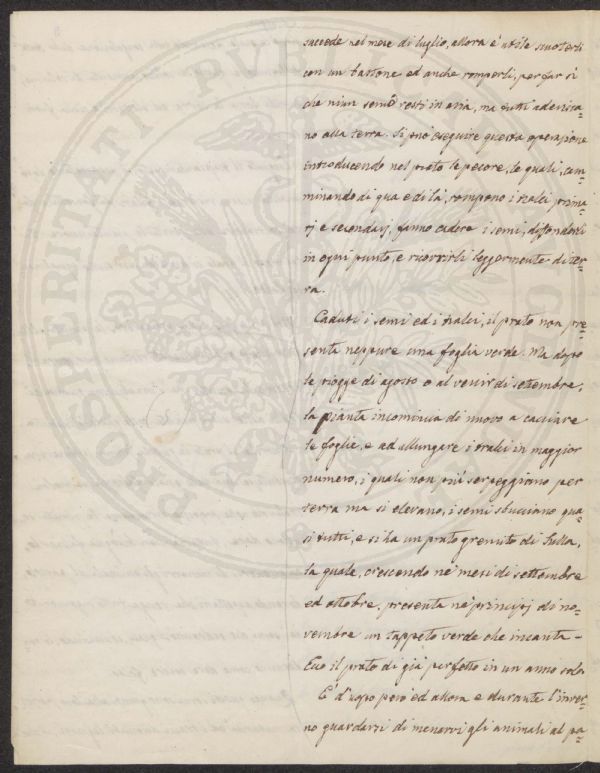 succede nel mese di luglio, allora è utile scuoterli
con un bastone ed anche romperli, per far sì
che niun seme resti in aria, ma tutti adevisca=
no alla terra. Si può eseguire questa operazione
introducendo nel prato le pecore, le quali, cam=
minando di qua e di là, rompono i tralci prima=
rj e secondarj, fanno cadere i semi, diffonderli
in ogni punto, e ricovrirli leggermente di ter=
ra.
Caduti i semi ed i tralci, il prato non pre=
senta neppure una foglia verde. Ma dopo
le piogge di agosto o al venir di settembre,
la pianta incomincia di nuovo a cacciare
le foglie, e ad allungare i tralci in maggior
numero, i quali non più serpeggiano per
terra ma si elevano, i semi sbucciano qua=
si tutti, e si ha un prato gremito di Sulla,
la quale, crescendo ne' mesi di settembre
ed ottobre, presenta ne' principj di no=
vembre un tappeto verde che incanta -
Ecco il prato di già perfetto in un anno solo.
E' d'uopo però ed allora e durante l'inver=
no guardarsi di menarvi gli animali al pa=
PROSPERITATI PUBLICAE AUGENDAE